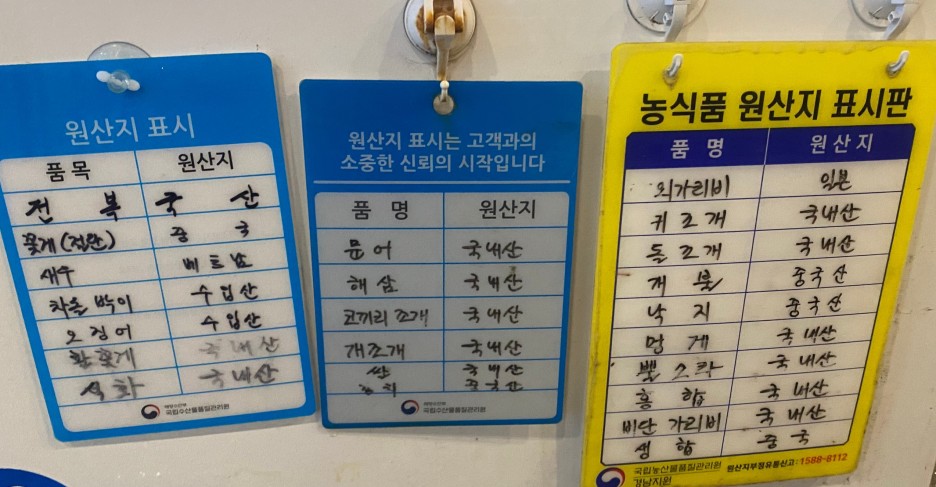 원산지 표시
품목 원산지
전 복 국 산
꽃게(절단) 중 국
새우 베트남
차돌박이 수입산
오징어 수입산
활꽃게 국내산
석화 국내산
해양수산부
국립수산물품질관리원
원산지 표시는 고객과의
소중한 신뢰의 시작입니다
품 명 원산지
문어 국내산
해삼 국내산
코끼리조개 국내산
개조개 국내산
쌀 국내산
중국산
해양수산부
국립수산물품질관리원
농식품 원산지 표시판
품 명 원산지
외가리비 일본
귀조개 국내산
돌조개 국내산
개불 중국산
낙지 중국산
멍게 국내산
뿔소라 국내산
홍합 국내산
비단가리비 국내산
생합 중국
국립농산물품질관리원 원산지부정유통신고:1588-8112
경남지원